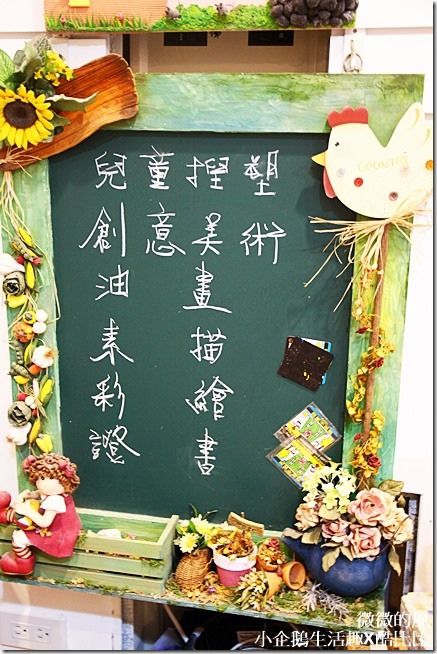 兒童捏塑
創意美術
油畫
素描
彩繪
證書
COUNTRY
微微的
小企鵝生活趣X酷比